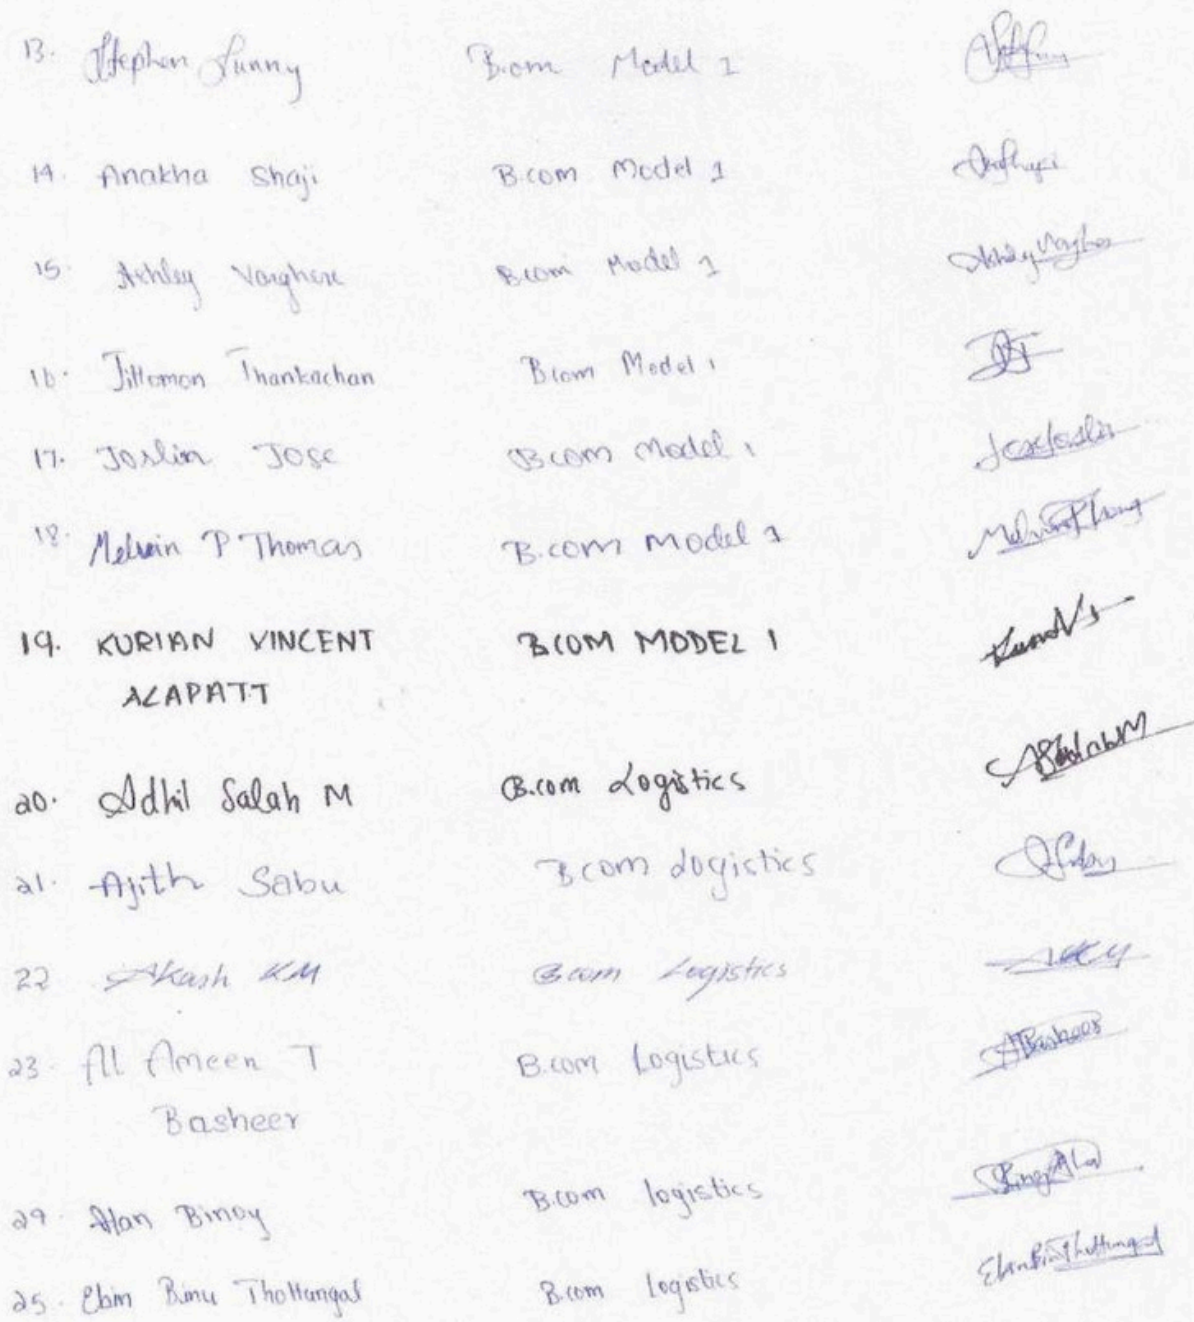 13. Stephen Sunny B.com Model 1
14. Anakha Shaji B.com Model 1
15. Ashley Varghese B.com Model 1
16. Jittomon Thankachan B.com Model 1
17. Joslin Jose B.com Model 1
18. Melvin P Thomas B.com Model 1
19. KURIAN VINCENT BCOM MODEL 1
ALAPATT
20. Adhil Salah M B.com Logistics
21. Ajith Sabu Bcom Logistics
22 Akash KM Bcom Logistics
23. Al Ameen T B.com Logistics
Basheer
24. Alan Binoy B.com logistics
25. Ebin Binu Thottungal B.com logistics